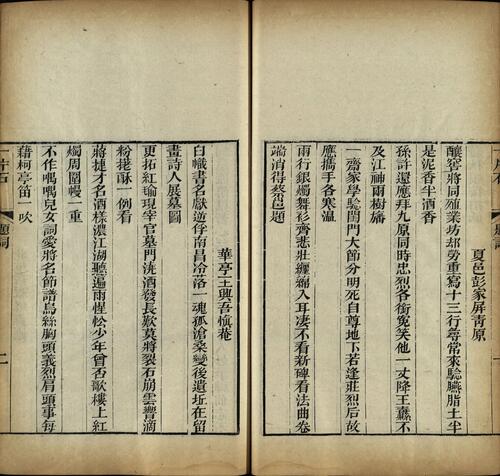 夏邑彭家屏青原
釀窖將同殖業坊却勞重寫十三行尋常來驗臙脂土半
是泥香半酒香
孫許還應拜九原同時忠烈各銜冤笑他一丈降王纛不
及江神雨樹旛
一齋家學驗閨門大節分明死自尊地下若逢莊烈后故
應攜手各寒溫
兩行銀燭舞衫齊悲壯纏綿入耳凄不看新碑看法曲卷
端消得蔡邕題
華亭王興吾愼菴
白幟書名獻逆俘南昌冷落一魂孤滄桑變後遺址在留
畫詩人展墓圖
更拓紅瑜現宰官墓門澆酒發長歎莫將裂石崩雲響滴
粉搓酥一例看
蔣捷才名酒樣濃江湖聽遍雨惺忪少年曾否歌樓上紅
燭周圍幔一重
不作喁喁兒女詞愛將名節譜烏絲胸頭義烈肩頭事每
藉柯亭笛一吹
一片石
題詞
二